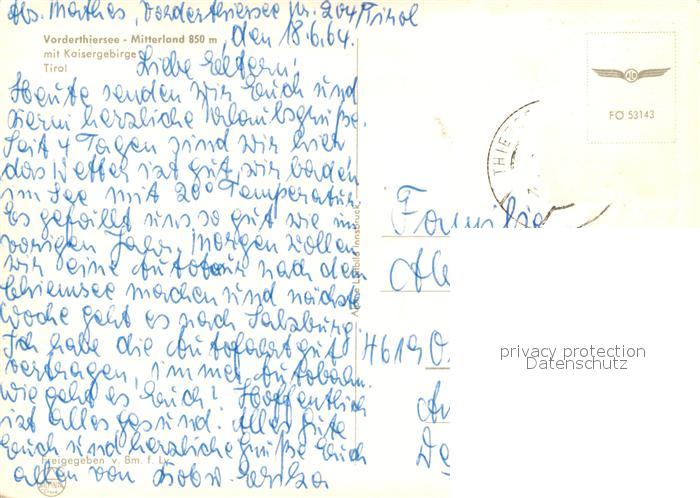 Abs. Mathes, Vorderthiersee Nr. 204/Tirol
den 18.6.64.
Vorderthiersee - Mitterland 850 m
mit Kaisergebirge
Tirol
Liebe Eltern!
Heute senden wir Euch und
herzliche Urlaubsgrüße.
Seit 4 Tagen sind wir hier
das Wetter ist gut, wir baden
im See mit 20° Temperatur
Es gefällt uns so gut wie im
vorigen Jahr. Morgen wollen
wir eine Autotour nach dem
Chiemsee machen und nächste
Woche geht es nach Salzburg.
Ich habe die Autofahrt gut
vertragen, immer Autobahn.
Wie geht es Euch? Hoffentlich
ist alles gesund. Alles Gute
Euch und herzliche Grüße Euch
Freigegeben v. Bm. f. Lv.
allen von
Alpine Luftbild Innsbruck
FO 53143
THIE
Familie
4619
privacy protection
Datenschutz